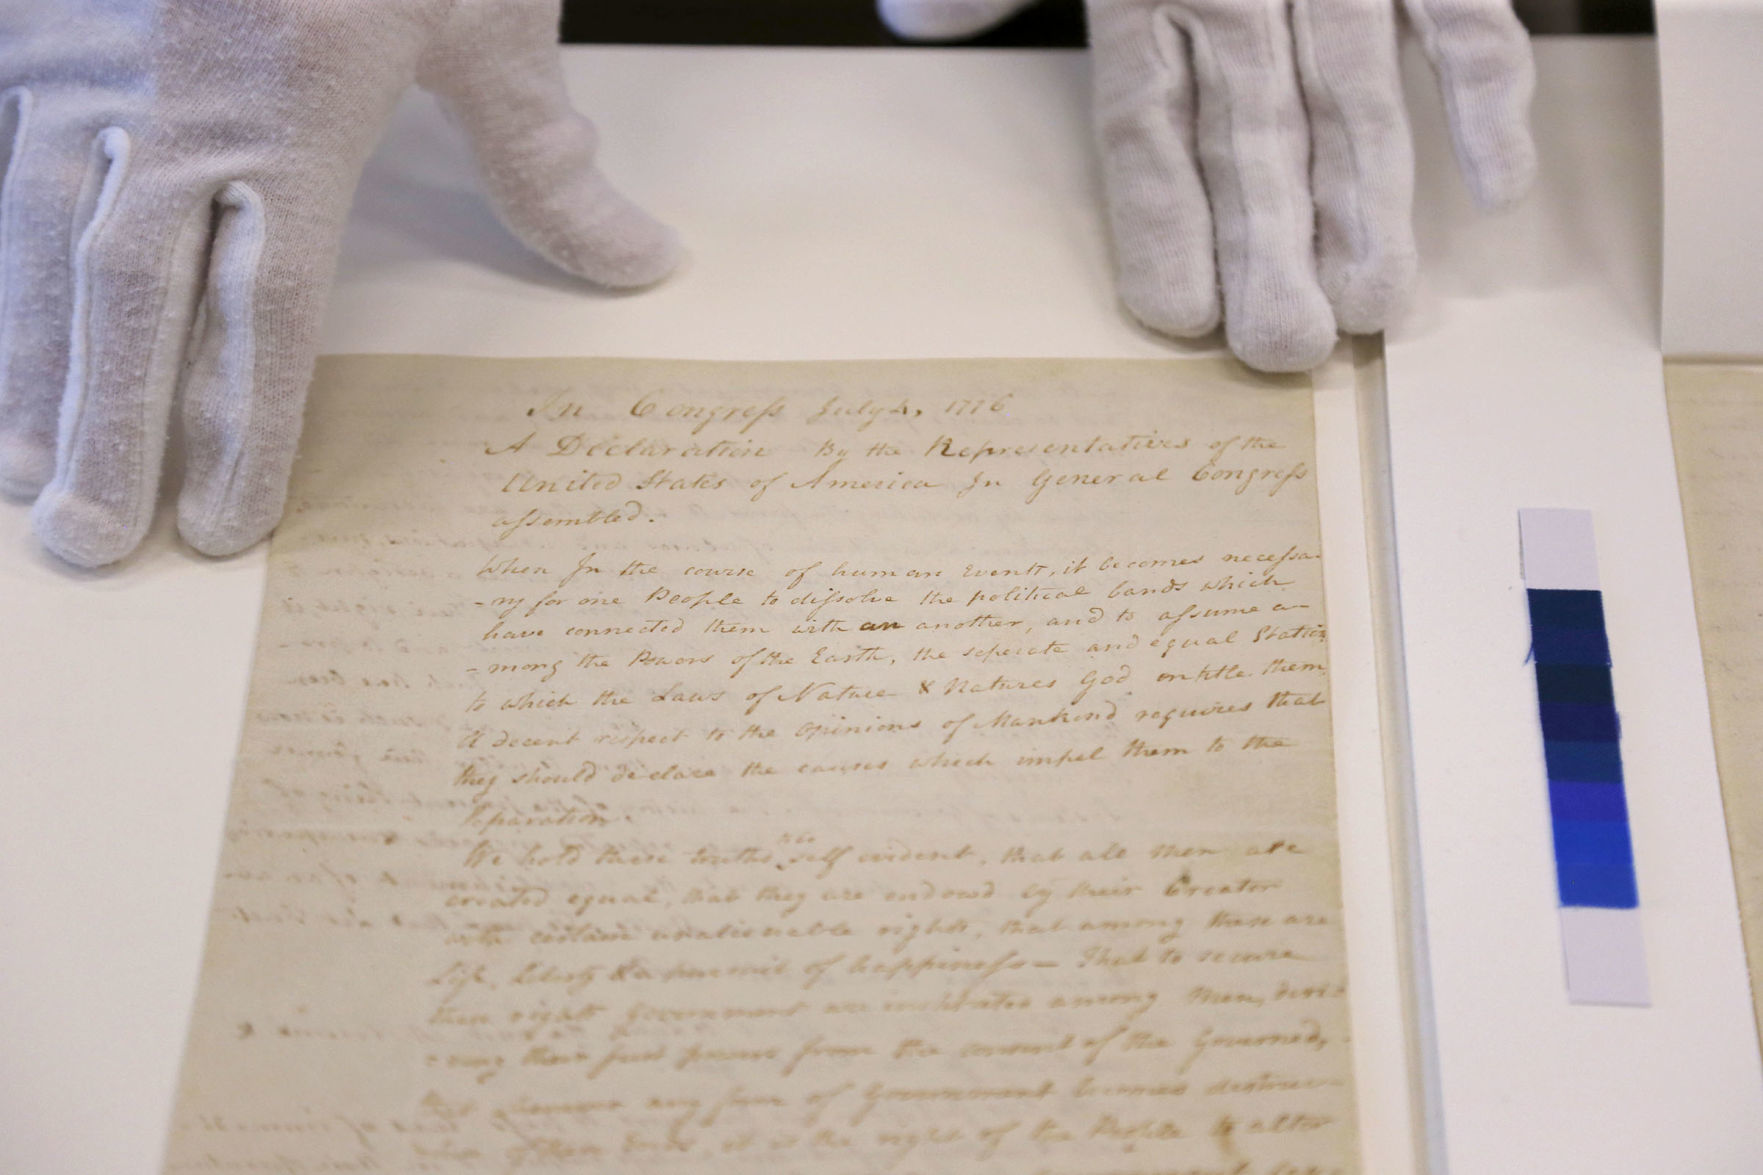 In Congress July 4, 1776
A Declaration By the Representatives of the
United States of America In General Congress
assembled.
When In the course of human Events, it becomes necessa-
-ry for one People to dissolve the political bands which
have connected them with an another, and to assume a-
-mong the Powers of the Earth, the seperate and equal Station
to which the Laws of Nature & Natures God entitle them,
A decent respect to the opinions of Mankind requires that
they should declare the causes which impel them to the
separation.
We hold these truths self evident, that all men are
created equal, that they are endowd by their Creator
with certain unalienable rights, that among these are
Life, Liberty & a pursuit of happiness— That to secure
these right Government are instituted among Men, deri-
-ving their just powers from the consent of the Governed,
any form of Government becomes destruc-
of these Ends, it is the right of the People to alter